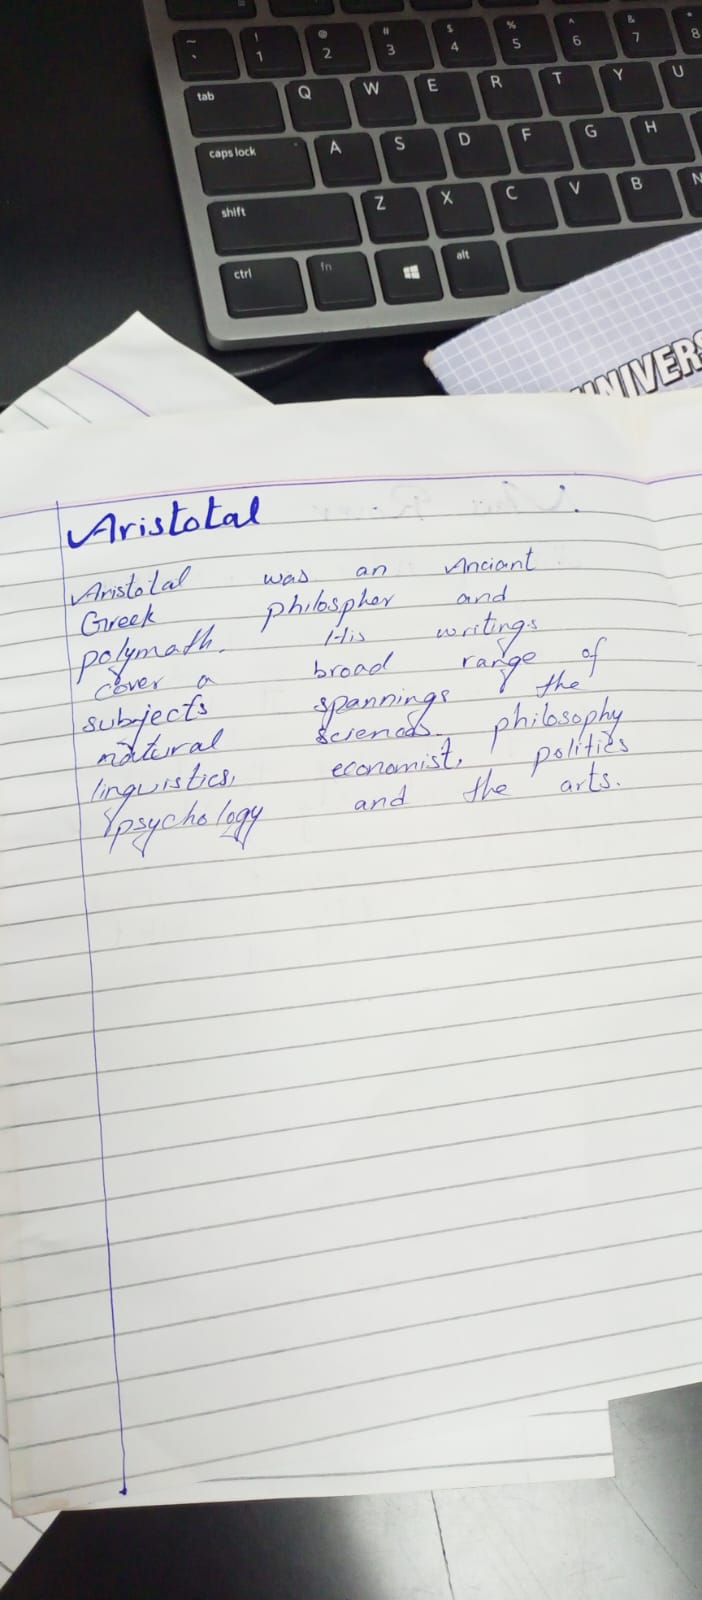 ~ ` ! 1 @ 2 # 3 $ 4 % 5 ^ 6 & 7 * 8
tab Q W E R T Y U
caps lock A S D F G H
shift Z X C V B N
ctrl fn alt
UNIVERS
Aristotal
Aristotal was an Anciant
Greek philospher and
polymath. His writings
cover a broad range of
subjects spannings the
natural sciences. philosophy
linguistics, economist, politics
psychology and the arts.